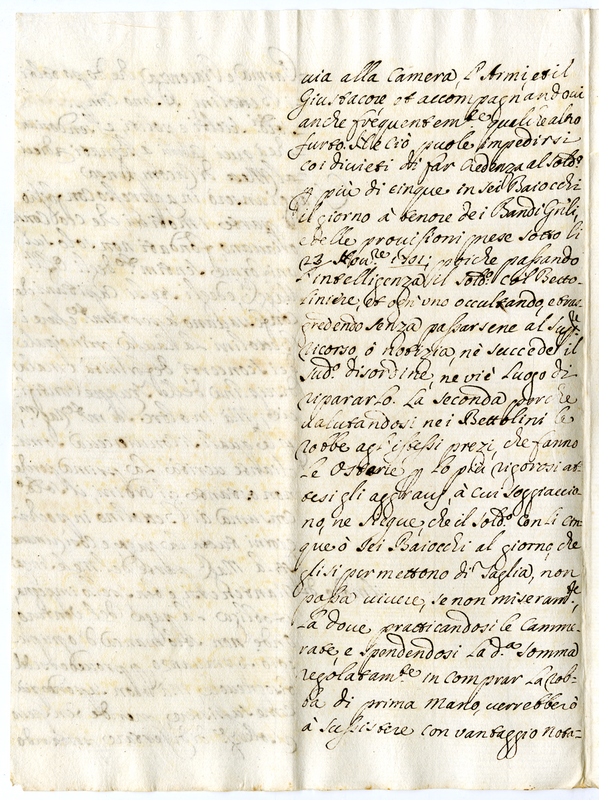 via alla Camera, l'Armi, et il
Giustacore, et accompagnandovi
anche frequentem.te qualche altro
furto. Nè ciò puole impedirsi
coi divieti di far credenza al Sold.o
più di cinque in sei Baiocchi
il giorno à tenore dei Bandi Grili,
e delle provisioni prese sotto li
23 Nov.re 1701; poiche passando
l'intelligenza il Sold.o col Betto-
liniere, et ogn'uno occultando, e tras
gredendo senza passarsene al
ricorso, ò notizia, nè succede il
sud.o disordine, ne vi è luogo di
ripararlo. La seconda perche
valutandosi nei Bettolini le
robbe agl'istessi prezi, che fanno
le Osterie p lo più rigorosi at-
tesi gli aggravi, à cui soggiaccio
no, ne segue che il Sold.o con li cin
que ò sei Baiocchi al giorno che
gli si permettono di Taglia, non
possa vivere, se non miseram.te,
La dove practicandosi le Camme-
rate, e spendendosi la d.a somma
regolatam.te in comprar la rob-
ba di prima mano, verrebbero
à sussistere con vantaggio nota=